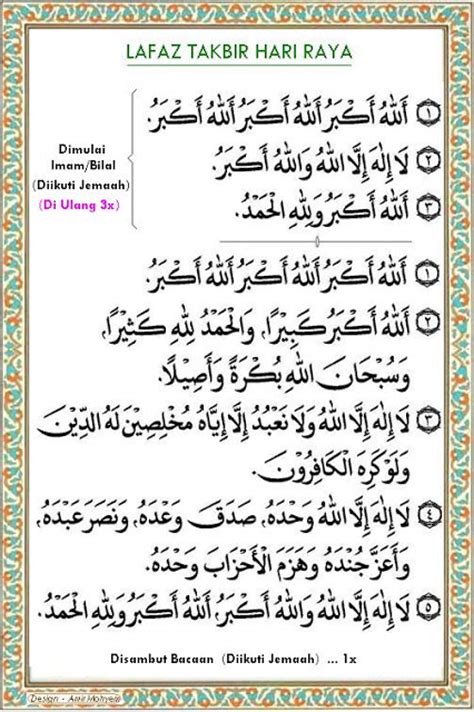 LAFAZ TAKBIR HARI RAYA
١ اَللهُ أَكْبَرُ اَللهُ أَكْبَرُ اَللهُ أَكْبَرُ.
٢ لَا إِلٰهَ إِلَّا اللهُ وَاللهُ أَكْبَرُ.
٣ اَللهُ أَكْبَرُ وَلِلّٰهِ الْحَمْدُ.
Dimulai
Imam/Bilal
(Diikuti Jemaah)
(Di Ulang 3x)
١ اَللهُ أَكْبَرُ اَللهُ أَكْبَرُ اَللهُ أَكْبَرُ.
٢ اَللهُ أَكْبَرُ كَبِيْرًا, وَالْحَمْدُ لِلّٰهِ كَثِيْرًا,
وَسُبْحَانَ اللهِ بُكْرَةً وَأَصِيْلًا.
٣ لَا إِلٰهَ إِلَّا اللهُ وَلَا نَعْبُدُ إِلَّا إِيَّاهُ مُخْلِصِيْنَ لَهُ الدِّيْنَ
وَلَوْ كَرِهَ الْكَافِرُوْنَ.
٤ لَا إِلٰهَ إِلَّا اللهُ وَحْدَهُ, صَدَقَ وَعْدَهُ, وَنَصَرَ عَبْدَهُ,
وَأَعَزَّ جُنْدَهُ وَهَزَمَ الْأَحْزَابَ وَحْدَهُ.
٥ لَا إِلٰهَ إِلَّا اللهُ وَاللهُ أَكْبَرُ, اَللهُ أَكْبَرُ وَلِلّٰهِ الْحَمْدُ.
Disambut Bacaan (Diikuti Jemaah) ... 1x
Design - Amir Mohyem